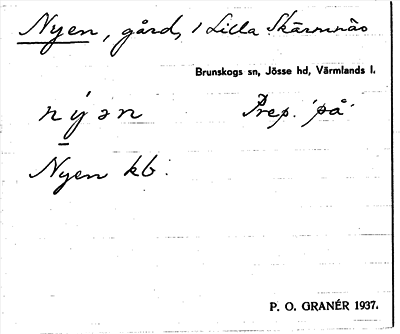 Nyen, gård, i Lilla Skärmnäs
Brunskogs sn, Jösse hd, Värmlands l.
ny̍ən Prep. 'på'
Nyen kb.
P. O. GRANÉR 1937.